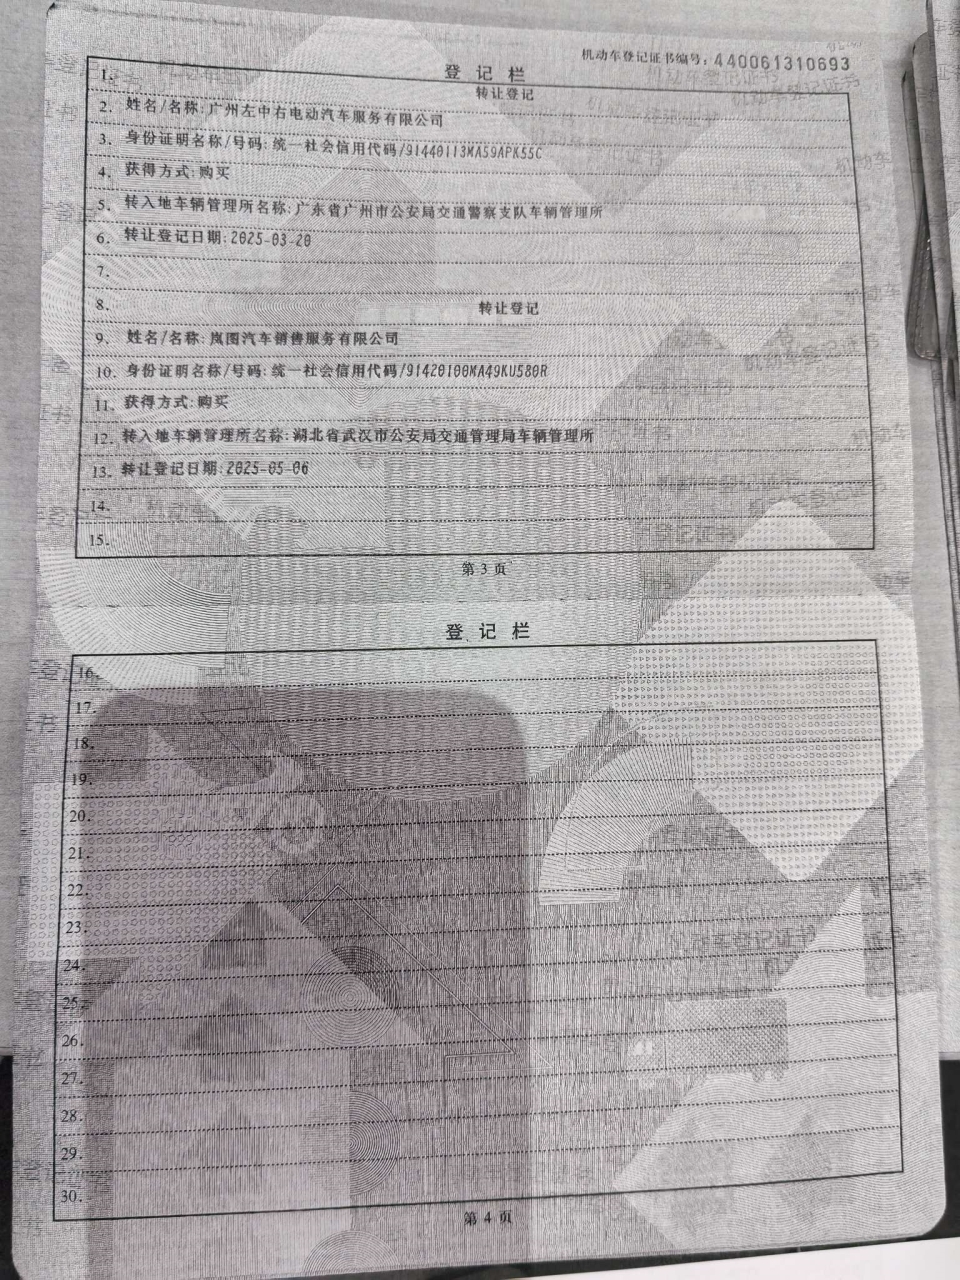 机动车登记证书编号：440061310693
登记栏
1. 转让登记
2. 姓名/名称：广州左中右电动汽车服务有限公司
3. 身份证明名称/号码：统一社会信用代码/91440113MA59APK55C
4. 获得方式：购买
5. 转入地车辆管理所名称：广东省广州市公安局交通警察支队车辆管理所
6. 转让登记日期：2025-03-20
7.
8. 转让登记
9. 姓名/名称：岚图汽车销售服务有限公司
10. 身份证明名称/号码：统一社会信用代码/91420100MA49KU580R
11. 获得方式：购买
12. 转入地车辆管理所名称：湖北省武汉市公安局交通管理局车辆管理所
13. 转让登记日期：2025-05-06
14.
15.
第 3 页
登记栏
16.
17.
18.
19.
20.
21.
22.
23.
24.
25.
26.
27.
28.
29.
30.
第 4 页